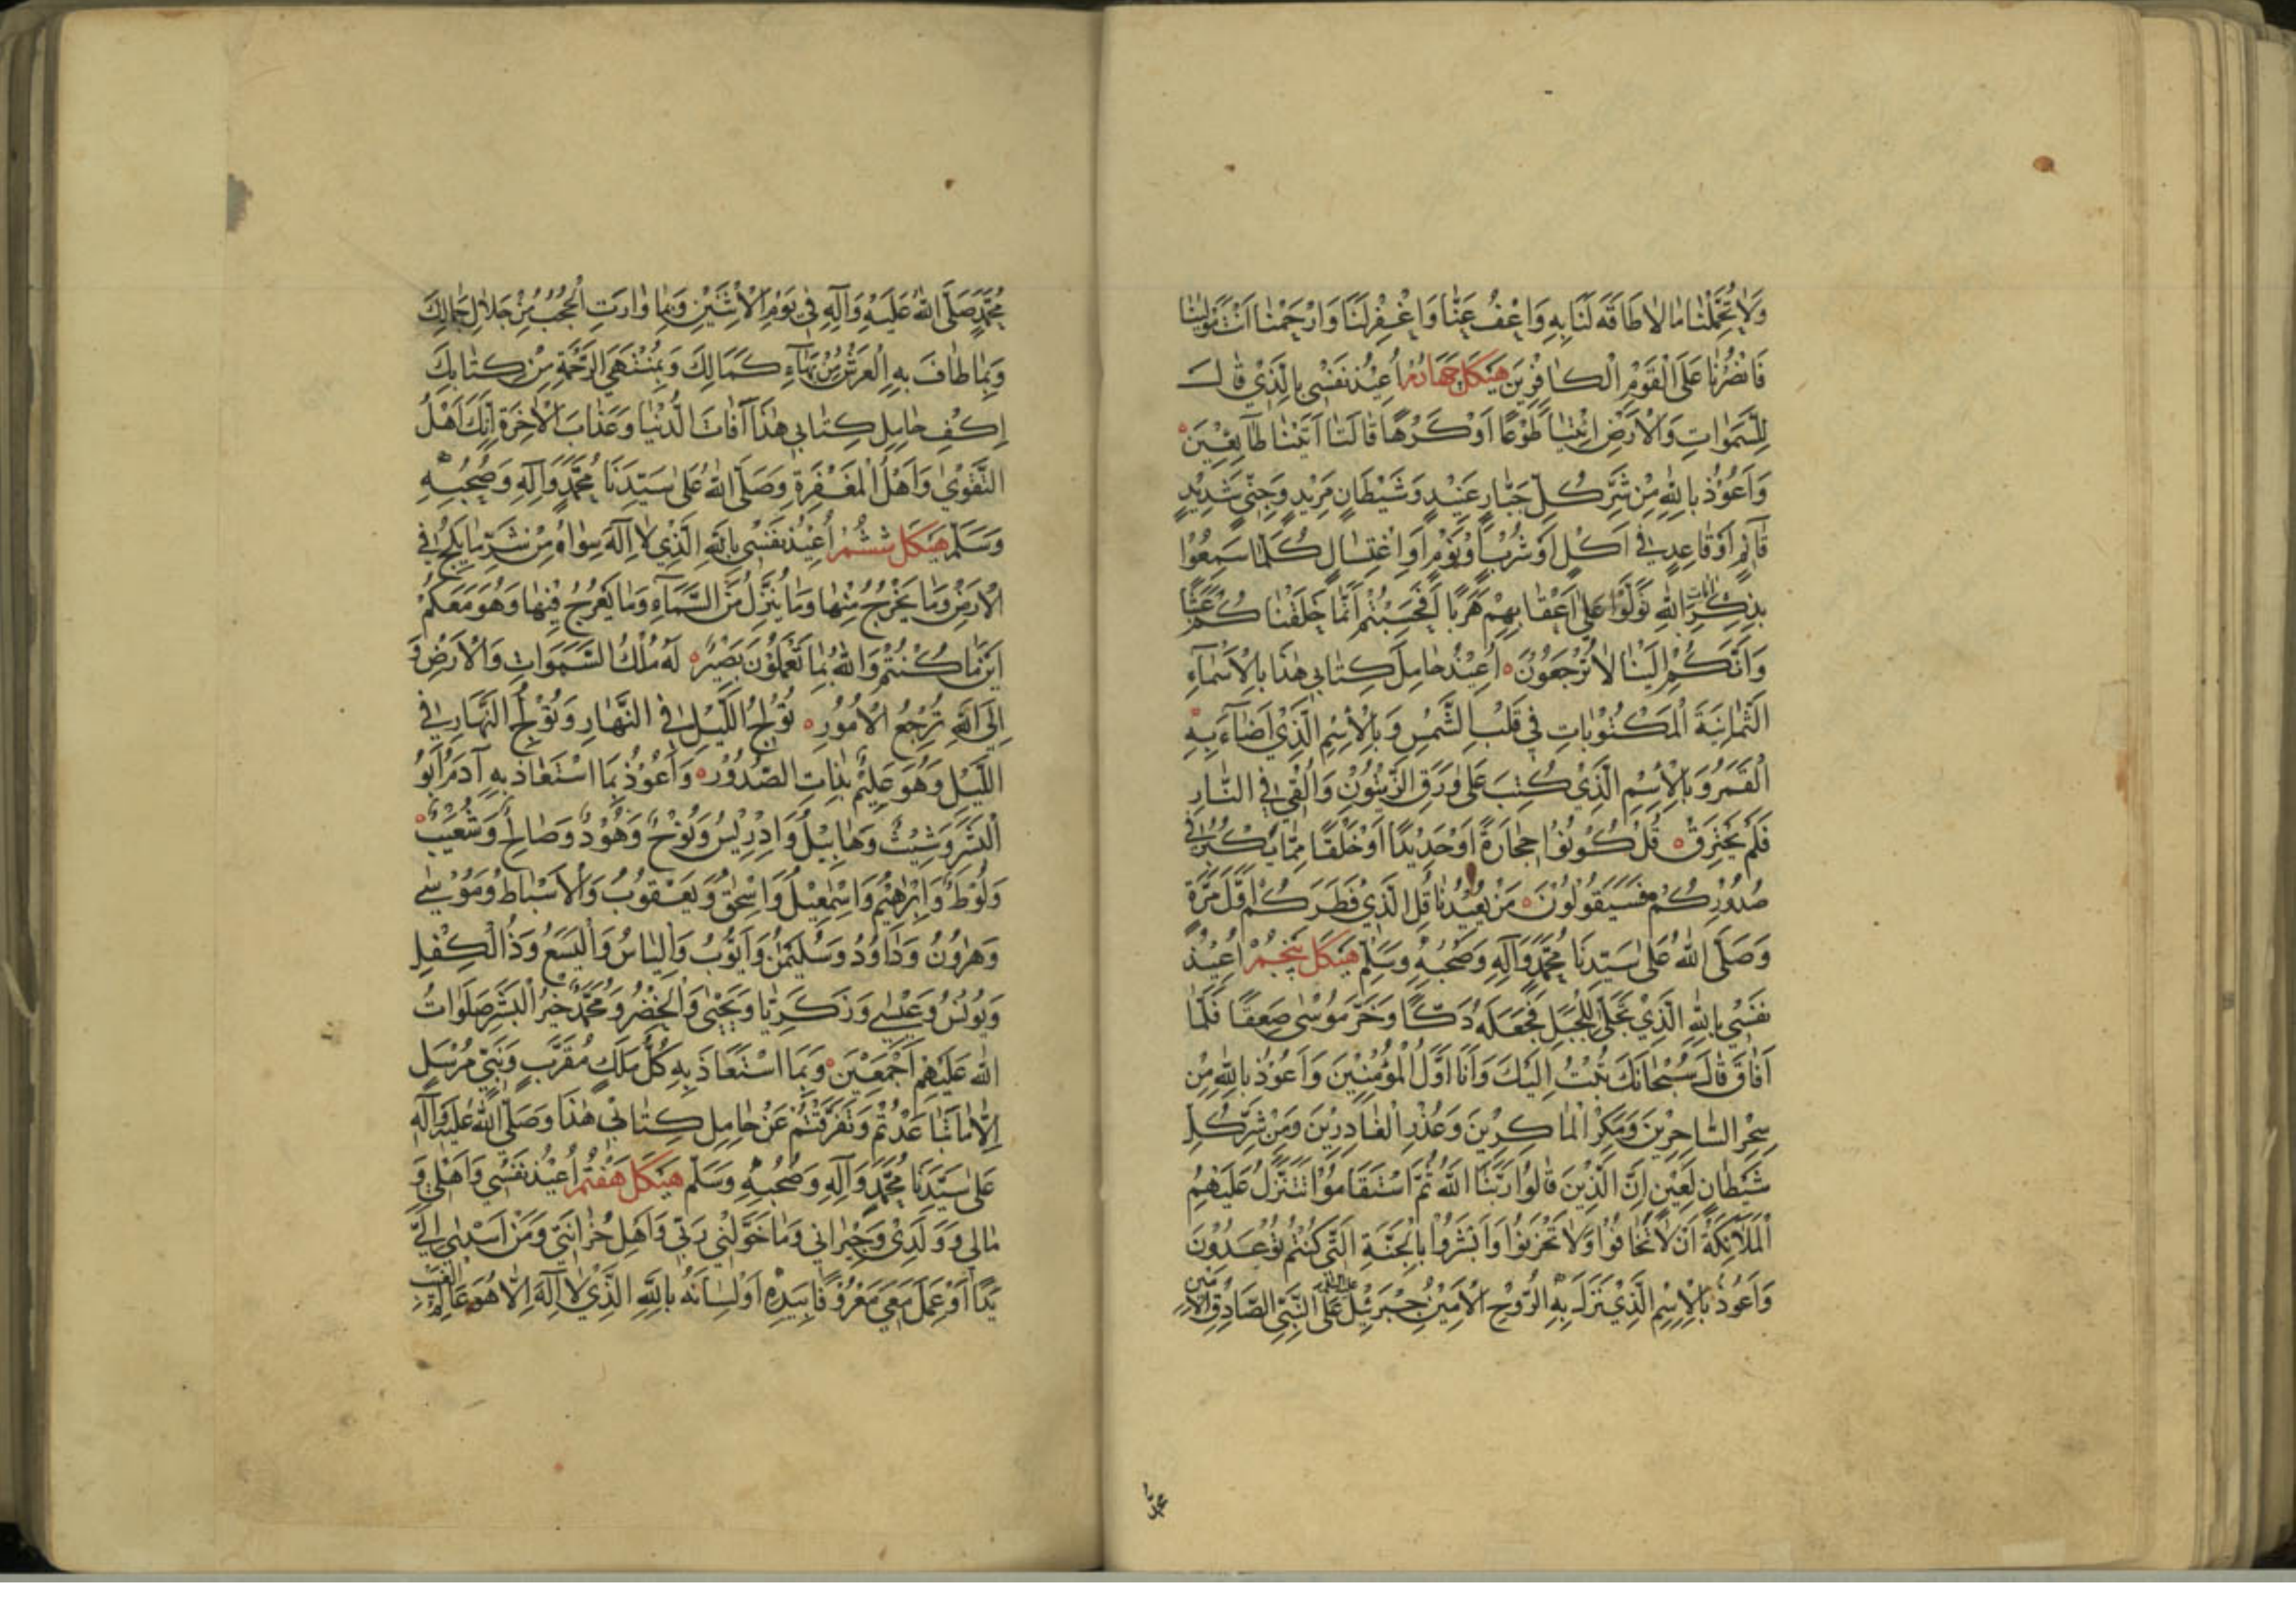 وَلَا تُحَمِّلْنَا مَا لَا طَاقَةَ لَنَا بِهِ وَاعْفُ عَنَّا وَاغْفِرْ لَنَا وَارْحَمْنَا أَنْتَ مَوْلَانَا
فَانْصُرْنَا عَلَى الْقَوْمِ الْكَافِرِينَ هَيْكَل چَهَارُم أُعِيذُ نَفْسِي بِالَّذِي قَالَ
لِلسَّمَوَاتِ وَالْأَرْضِ ائْتِيَا طَوْعًا أَوْ كَرْهًا قَالَتَا أَتَيْنَا طَائِعِينَ
وَأَعُوذُ بِاللَّهِ مِنْ شَرِّ كُلِّ جَبَّارٍ عَنِيدٍ وَشَيْطَانٍ مَرِيدٍ وَجِنِّيٍّ شَدِيدٍ
قَائِمٍ أَوْ قَاعِدٍ فِي أَكْلٍ أَوْ شُرْبٍ أَوْ نَوْمٍ أَوِ اغْتِسَالٍ كُلَّمَا سَمِعُوا
بِذِكْرِ آيَاتِ اللَّهِ تَوَلَّوْا عَلَى أَعْقَابِهِمْ هَرَبًا أَفَحَسِبْتُمْ أَنَّمَا خَلَقْنَاكُمْ عَبَثًا
وَأَنَّكُمْ إِلَيْنَا لَا تُرْجَعُونَ أُعِيذُ حَامِلَ كِتَابِي هَذَا بِالْأَسْمَاءِ
الثَّمَانِيَةَ الْمَكْتُوبَاتِ فِي قَلْبِ الشَّمْسِ وَبِالْاِسْمِ الَّذِي أَضَاءَ بِهِ
الْقَمَرُ وَبِالْاِسْمِ الَّذِي كُتِبَ عَلَى وَرَقِ الزَّيْتُونِ وَأُلْقِيَ فِي النَّارِ
فَلَمْ يَحْتَرِقْ قُلْ كُونُوا حِجَارَةً أَوْ حَدِيدًا أَوْ خَلْقًا مِمَّا يَكْبُرُ فِي
صُدُورِكُمْ فَسَيَقُولُونَ مَنْ يُعِيدُنَا قُلِ الَّذِي فَطَرَكُمْ أَوَّلَ مَرَّةٍ
وَصَلَّى اللَّهُ عَلَى سَيِّدِنَا مُحَمَّدٍ وَآلِهِ وَصَحْبِهِ وَسَلِّمْ هَيْكَل پَنْجُم أُعِيذُ
نَفْسِي بِاللَّهِ الَّذِي تَجَلَّى لِلْجَبَلِ فَجَعَلَهُ دَكًّا وَخَرَّ مُوسَى صَعِقًا فَلَمَّا
أَفَاقَ قَالَ سُبْحَانَكَ تُبْتُ إِلَيْكَ وَأَنَا أَوَّلُ الْمُؤْمِنِينَ وَأَعُوذُ بِاللَّهِ مِنْ
سِحْرِ السَّاحِرِينَ وَمَكْرِ الْمَاكِرِينَ وَغَدْرِ الْغَادِرِينَ وَمِنْ شَرِّ كُلِّ
شَيْطَانٍ لَعِينٍ إِنَّ الَّذِينَ قَالُوا رَبُّنَا اللَّهُ ثُمَّ اسْتَقَامُوا تَتَنَزَّلُ عَلَيْهِمُ
الْمَلَائِكَةُ أَنْ لَا تَخَافُوا وَلَا تَحْزَنُوا وَأَبْشِرُوا بِالْجَنَّةِ الَّتِي كُنْتُمْ تُوعَدُونَ
وَأَعُوذُ بِالْاِسْمِ الَّذِي نَزَلَ بِهِ الرُّوحُ الْأَمِينُ جِبْرَئِيلُ عَلَى النَّبِيِّ الصَّادِقِ الْأَمِينِ
مُحَمَّدٍ صَلَّى اللَّهُ عَلَيْهِ وَآلِهِ فِي يَوْمِ الْاِثْنَيْنِ وَبِمَا وَارَتِ الْحُجُبُ مِنْ جَلَالِ جَمَالِكَ
وَبِمَا طَافَ بِهِ الْعَرْشُ مِنْ بَهَاءِ كَمَالِكَ وَبِمُنْتَهَى الرَّحْمَةِ مِنْ كِتَابِكَ
اِكْفِ حَامِلِ كِتَابِي هَذَا آفَاتَ الدُّنْيَا وَعَذَابَ الْآخِرَةِ إِنَّكَ أَهْلُ
التَّقْوَى وَأَهْلُ الْمَغْفِرَةِ وَصَلَّى اللَّهُ عَلَى سَيِّدِنَا مُحَمَّدٍ وَآلِهِ وَصَحْبِهِ
وَسَلَّمَ هَيْكَل شِشُم أُعِيذُ نَفْسِي بِاللَّهِ الَّذِي لَا إِلَهَ سِوَاهُ مِنْ شَرِّ مَا يَلِجُ فِي
الْأَرْضِ وَمَا يَخْرُجُ مِنْهَا وَمَا يُنَزِّلُ مِنَ السَّمَاءِ وَمَا يَعْرُجُ فِيهَا وَهُوَ مَعَكُمْ
أَيْنَمَا كُنْتُمْ وَاللَّهُ بِمَا تَعْمَلُونَ بَصِيرٌ لَهُ مُلْكُ السَّمَوَاتِ وَالْأَرْضِ وَ
إِلَى اللَّهِ تُرْجَعُ الْأُمُورِ تُولِجُ اللَّيْلَ فِي النَّهَارِ وَتُولِجُ النَّهَارِ فِي
اللَّيْلِ وَهُوَ عَلِيمٌ بِذَاتِ الصُّدُورِ وَأَعُوذُ بِمَا اسْتَعَاذَ بِهِ آدَمُ أَبُو
الْبَشَرِ وَشِيثٌ وَهَابِيلُ وَإِدْرِيسُ وَنُوحٌ وَهُودٌ وَصَالِحٌ وَشُعَيْبٌ
وَلُوطٌ وَإِبْرَاهِيمُ وَإِسْمَعِيلُ وَإِسْحَقُ وَيَعْقُوبُ وَالْأَسْبَاطُ وَمُوسَى
وَهَارُونُ وَدَاوُدُ وَسُلَيْمَنُ وَأَيُّوبُ وَإِلْيَاسُ وَالْيَسَعُ وَذُالْكِفْلِ
وَيُونُسُ وَعِيسَى وَزَكَرِيَّا وَيَحْيَى وَالْخِضْرُ وَمُحَمَّدٌ خَيْرُ الْبَشَرِ صَلَوَاتُ
اللَّهِ عَلَيْهِمْ أَجْمَعِينَ وَبِمَا اسْتَعَاذَ بِهِ كُلُّ مَلَكٍ مُقَرَّبٍ وَنَبِيٍّ مُرْسَلٍ
إِلَّا مَا تَبَاعَدْتُمْ وَتَفَرَّقْتُمْ عَنْ حَامِلِ كِتَابِي هَذَا وَصَلَّى اللَّهُ عَلَيْهِ وَآلِهِ
عَلَى سَيِّدِنَا مُحَمَّدٍ وَآلِهِ وَصَحْبِهِ وَسَلَّمَ هَيْكَل هَفْتُم أُعِيذُ نَفْسِي وَأَهْلِي وَ
مَالِي وَوَلَدِي وَجِيرَانِي وَمَا خَوَّلَنِي رَبِّي وَأَهْلِ خُزَانَتِي وَمَنْ أَسْدَى إِلَيَّ
يَدًا أَوْ عَمِلَ مَعِيَ مَعْرُوفًا بِيَدِهِ أَوْ لِسَانِهِ بِاللَّهِ الَّذِي لَا إِلَهَ إِلَّا هُوَ عَالِمُ الْغَيْبِ